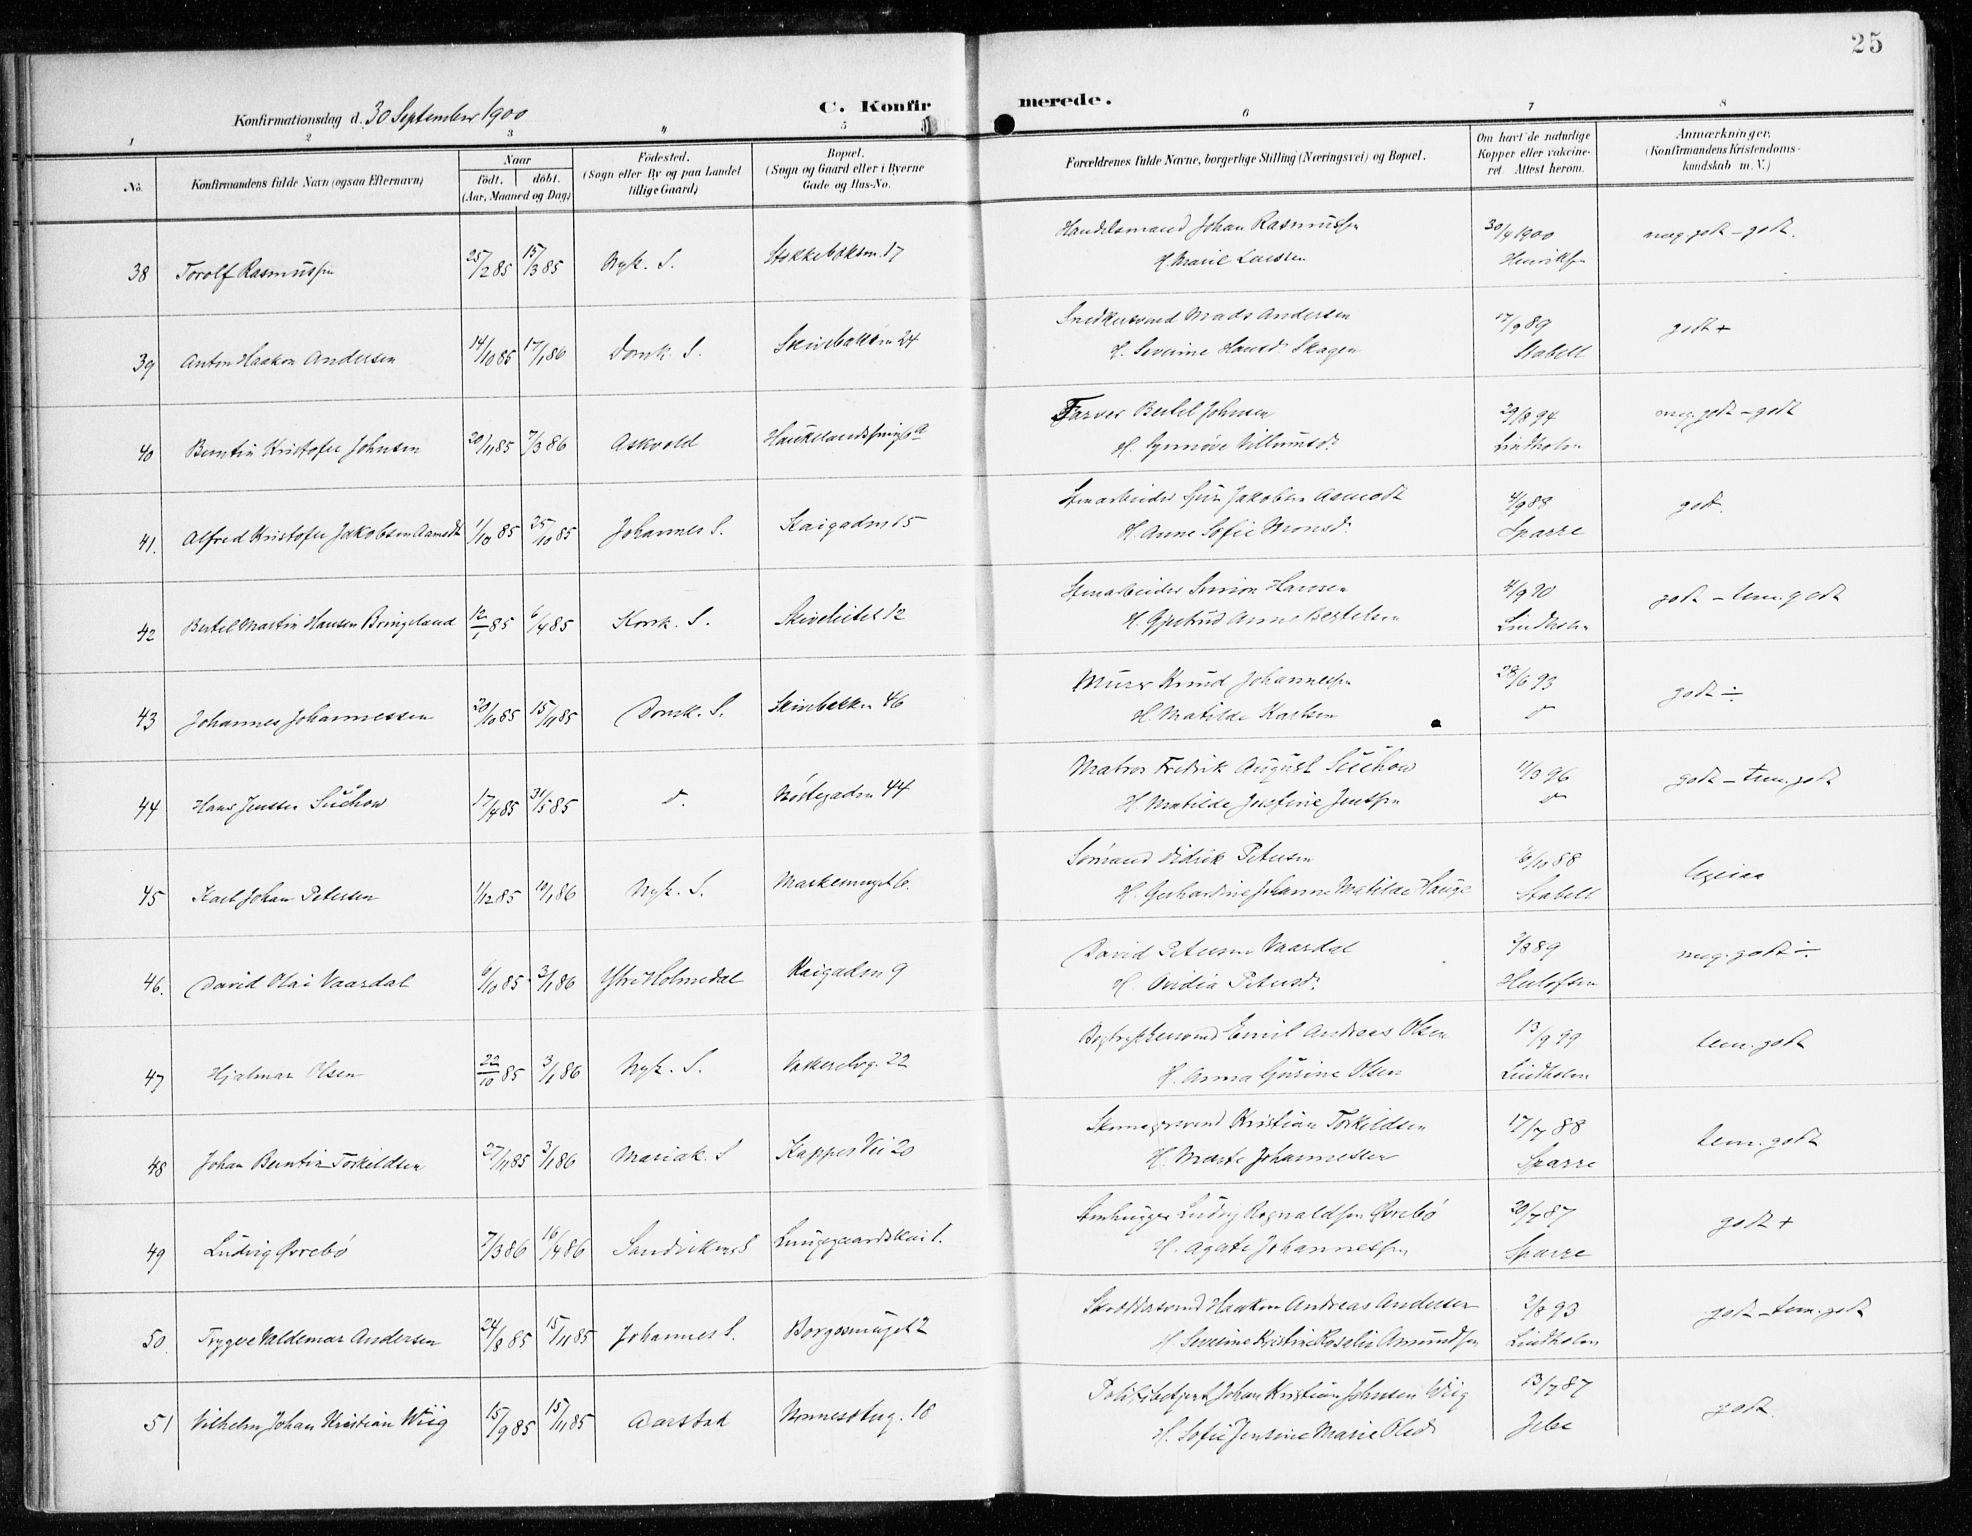 25
Konfirmationsdag d. 30 September 1900
C. Konfirmerede.
1 2 3 4 5 6 7 8
No. Konfirmandens fulde Navn (ogsaa Efternavn) Naar födt. döbt. (Aar, Maaned og Dag) Födested. (Sogn eller By og paa Landet tillige Gaard) Bopæl. (Sogn og Gaard eller i Byerne Gade og Hus-No. Forældrenes fulde Navne, borgerlige Stilling (Næringsvei) og Bopæl. Om havt de naturlige Kopper eller vakcineret. Attest herom. Anmærkninger. (Konfirmandens Kristendomskundskab m. V.)
Handelsmand Johan Rasmussen 30/4 1900 meg godt – godt.
38 Torolf Rasmussen 25/2 85 15/3 85 Nyk. S. 17 H. Marie Larsen Henriksen
Snedkersvend Mads Andersen 17/9 89 godt +
39 Anton Haakon Andersen 14/10 85 17/1 86 Domk. S. Skivebakken 24 H. Severine Hansd. Skagen Stabell
Farver Bertel Johnsen 29/8 94 meg. godt – godt
40 Berntin Kristofer Johnsen 20/11 85 7/3 86 Askvold H. Synnöve Villumsd. Lindholm
Stenarbeider Jakobsen Aamodt 4/9 88 godt.
41. Alfred Kristofer Jakobsen Aamodt 1/10 85 25/10 85 Johannes S. Kaigaden 15 H. Anne Sofie Monsd. Sparre
Stenarbeider Simon Hansen 4/9 90 godt – tem. godt
42 Bertel Martin Hansen Bringeland 12/1 85 6/4 85 Korsk. S. 12 H. Gjertrud Anne Bertelsen Lindholm
Murer Knud Johannessen 28/6 93 godt ÷
43 Johannes Johannessen 20/10 85 15/11 85 Domk. S. Skivebakken 46 H. Matilde Karlsen d
Matros Fredrik August Süchow 11/3 96 godt – tem. godt
44 Hans Jenssen Süchow 17/4 85 31/5 85 d. Nöstegaden 44 H. Matilde Josefine Jenssen d
Sömand Didrik Petersen 6/10 88
45 Karl Johan Petersen 1/12 85 10/1 86 Nyk. S. Markesmuget 6. H. Gerhardine Johanne Matilde Hauge Stabell
David Petersen Vaardal 2/8 89 meg. godt ÷
46. David Olai Vaardal 6/10 85 3/1 86 Ytre Holmedal Kaigaden 9 H. Ovidia Petersd.
Bogtrykkersvend Emil Andreas Olsen 13/9 99 tem. godt
47 Hjalmar Olsen 22/10 85 3/1 86 Nyk. S. 22 H. Anna Gurine Olsen Lindholm
Skomagersvend Kristian Torkildsen 17/7 88 tem. godt
48 Johan Berntin Torkildsen 27/11 85 3/1 86 Mariak. S Kappes Vei 20 H. Marte Johannessen Sparre
Stenhugger Ludvig Rognaldsen Øvrebö 20/7 87 godt +
49 Ludvig Øvrebö 7/3 86 16/4 86 Sandvikens S Lungegaardskai 1. H. Agate Johannessen Sparre
Skræddersvend Haakon Andreas Andersen 2/8 93 godt – tem. godt
50. Trygve Valdemar Andersen 24/8 85 15/11 85 Johannes S. Borgesmuget 2 H. Severine Kristine Rosalie Amundsen Lindholm
Politibetjent Johan Kristian Johnsen Wiig 13/7 87 godt.
51 Vilhelm Johan Kristian Wiig 15/9 85 15/11 85 Aarstad 18 H. Sofie Jensine Marie Olsd. Jebe